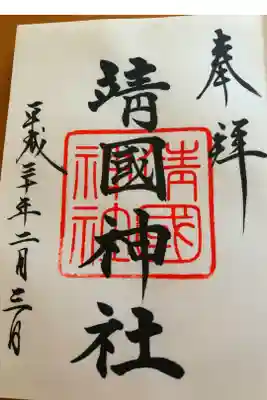 奉拝
靖國神社
靖國神社
平成三十年二月三日